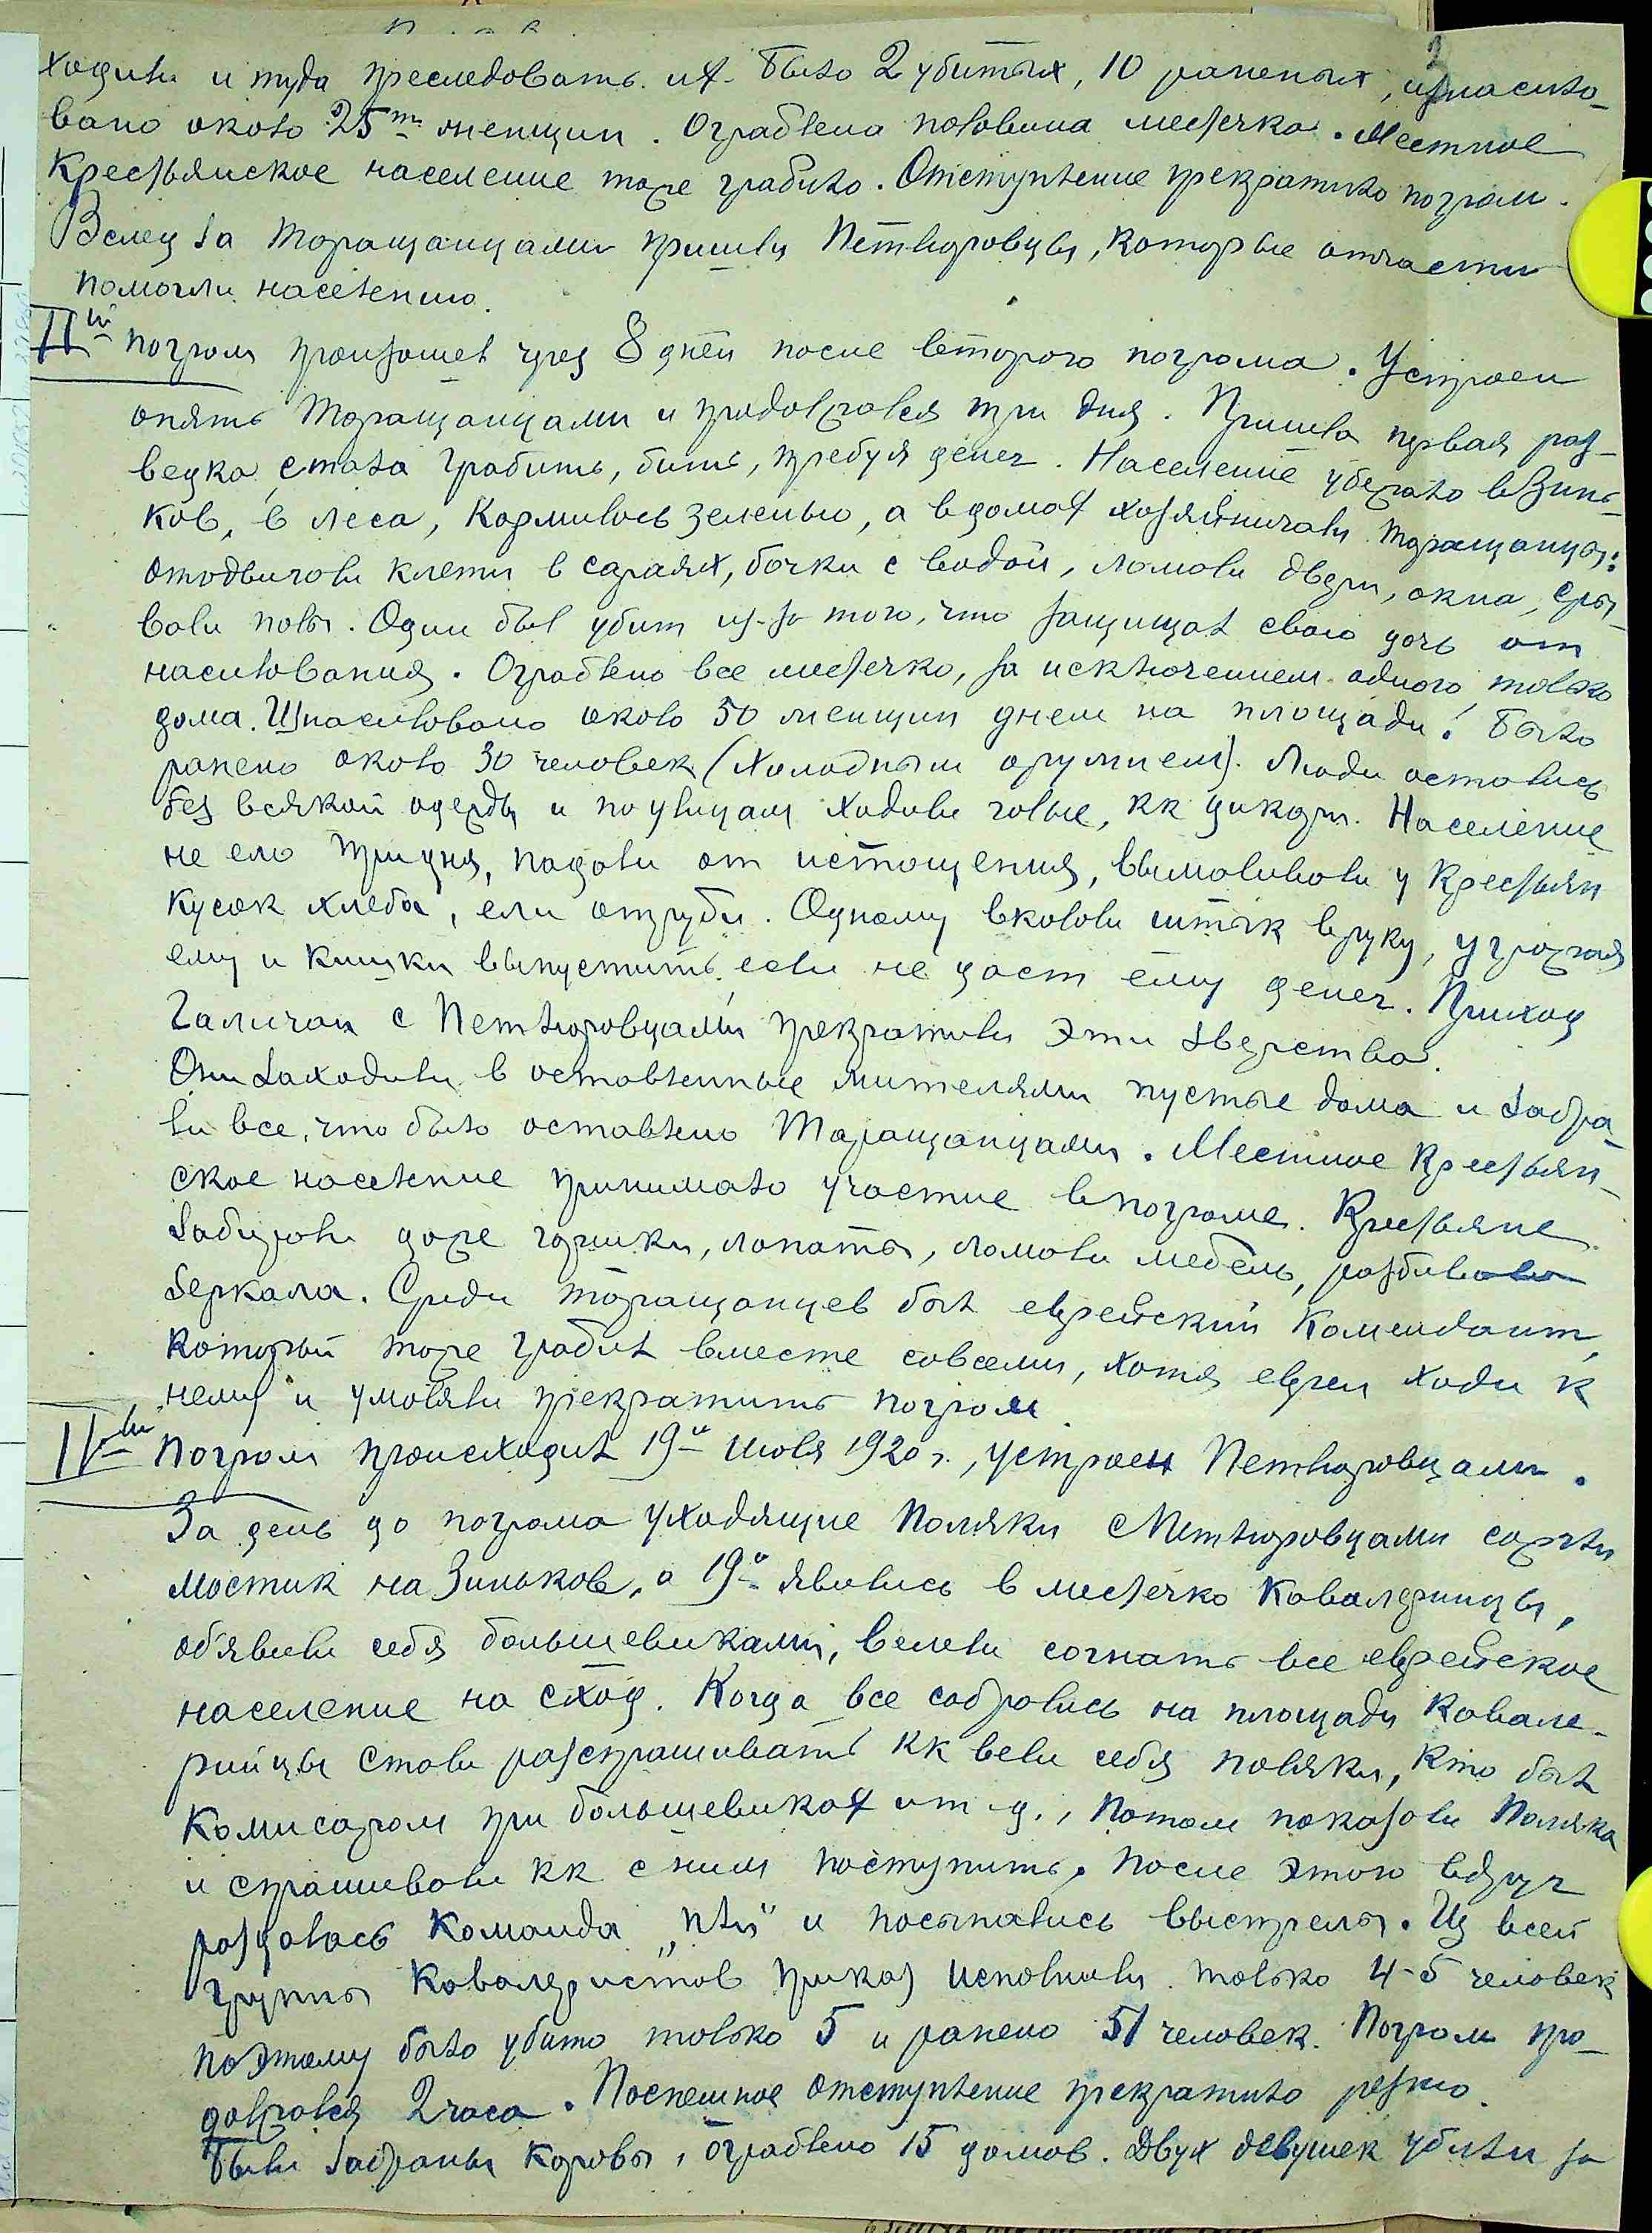 2
ходили и туда преследовать их. Было 2 убитых, 10 раненых, изнасило-
вано около 25ти женщин. Ограблена половина местечка. Местное
крестьянское население тоже грабило. Отступление прекратило погром.
Вслед за Таращанцами пришли Петлюровцы, которые отчасти
помогли населению.
IIIй погром произошел через 8 дней после второго погрома. Устроен
опять Таращанцами и продолжался три дня. Пришла первая раз-
ведка, стала грабить, бить, требуя денег. Население убежало в Зинь-
ков, в леса, кормилось зеленью, а в домах хозяйничали Таращанцы:
отодвигали клети в сараях, бочки с водой, ломали двери, окна, сры-
вали полы. Один был убит из-за того, что защищал свою дочь от
насилования. Ограблено все местечко, за исключением одного только
дома. Изнасиловано около 50 женщин днем на площади! Было
ранено около 30 человек (холодным оружием). Люди остались
без всякой одежды и по улицам ходили голые, кк дикари. Население
не ело три дня, падали от истощения, вымаливали у крестьян
кусок хлеба, ели отруби. Одному вкололи штык в руку, угрожая
ему и кишки выпустить, если не даст ему денег. Приход
Галичан с Петлюровцами прекратили эти зверства.
Они заходили в оставленные жителями пустые дома и забра-
ли все, что было оставлено Таращанцами. Местное крестьян-
ское население принимало участие в погроме. Крестьяне
забирали даже горшки, лопаты, ломали мебель, разбивали
зеркала. Среди Таращанцев был еврейский комендант,
который тоже грабил вместе совсеми, хотя евреи ходи к
нему и умоляли прекратить погром.
IVый погром происходил 19го июля 1920 г., устроен Петлюровцами.
За день до погрома уходящие Поляки с Петлюровцами сожгли
мостик на Зиньков, а 19го явились в местечко кавалеринцы,
об'явили себя большевиками, велели согнать все еврейское
население на сход. Когда все собрались на площади кавале-
рийцы стали расспрашивать кк вели себя поляки, кто был
комисаром при большевиках и т.д., потом показали Поляка
и спрашивали кк с ним поступить. После этого вдруг
раздалась команда „пли" и посыпались выстрелы. Из всей
групы кавалеристов приказ исполнили только 4-5 человек
поэтому было убито только 5 и ранено 51 человек. Погром про-
должался 2 часа. Поспешное отступление прекратило резню.
Были забраны коровы, ограблено 15 домов. Двух девушек убили за